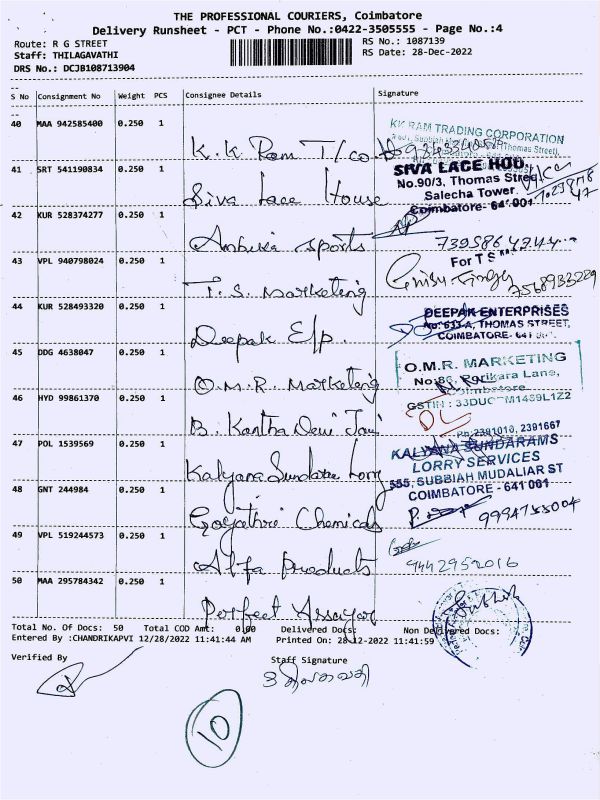 THE PROFESSIONAL COURIERS, Coimbatore
Delivery Runsheet - PCT - Phone No.:0422-3505555 - Page No.:4
Route: R G STREET
RS No.: 1087139
Staff: THILAGAVATHI
RS Date: 28-Dec-2022
DRS No.: DCJB108713904
S No Consignment No Weight PCS Consignee Details Signature
40 MAA 942585400 0.250 1
KK RAM TRADING CORPORATION
K. K. Ram T/co.
41 SRT 541190834 0.250 1
SIVA LACE HOU
No.90/3, Thomas Street
Salecha Tower
Coimbatore- 641 001
Siva Lace House
42 KUR 528374277 0.250 1
Ambika Sports
43 VPL 940798024 0.250 1
For T S
T. S. Marketing
7568933229
44 KUR 528493320 0.250 1
DEEPAK ENTERPRISES
No. 633-A, THOMAS STREET,
COIMBATORE-
Deepak E/p.
45 DDG 4638047 0.250 1
O.M.R. MARKETING
Lane,
Coimbatore
O.M.R. Marketing
46 HYD 99861370 0.250 1
GSTIN :
B. Kantha Devi Jain
Ph:2391010, 2391667
47 POL 1539569 0.250 1
KALYANA SUNDARAMS
LORRY SERVICES
555, SUBBIAH MUDALIAR ST
COIMBATORE - 641 001
Kalyana Sundara Lorry
48 GNT 244984 0.250 1
Gayathri Chemicals
49 VPL 519244573 0.250 1
9442952016
Alfa Products
50 MAA 295784342 0.250 1
Perfect Assayar
Total No. Of Docs: 50 Total COD Amt: 0.00 Delivered Docs: Non Delivered Docs:
Entered By :CHANDRIKAPVI 12/28/2022 11:41:44 AM Printed On: 28-12-2022 11:41:59
Verified By
Staff Signature
திலகவதி
10